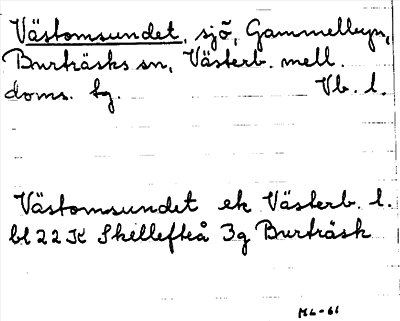 Västomsundet, sjö, Gammelbyn,
Burträsks sn, Västerb. mell.
doms. bg. Vb. l.
Västomsundet ek Västerb. l.
bl 22 K Skellefteå 3g Burträsk
ML-61